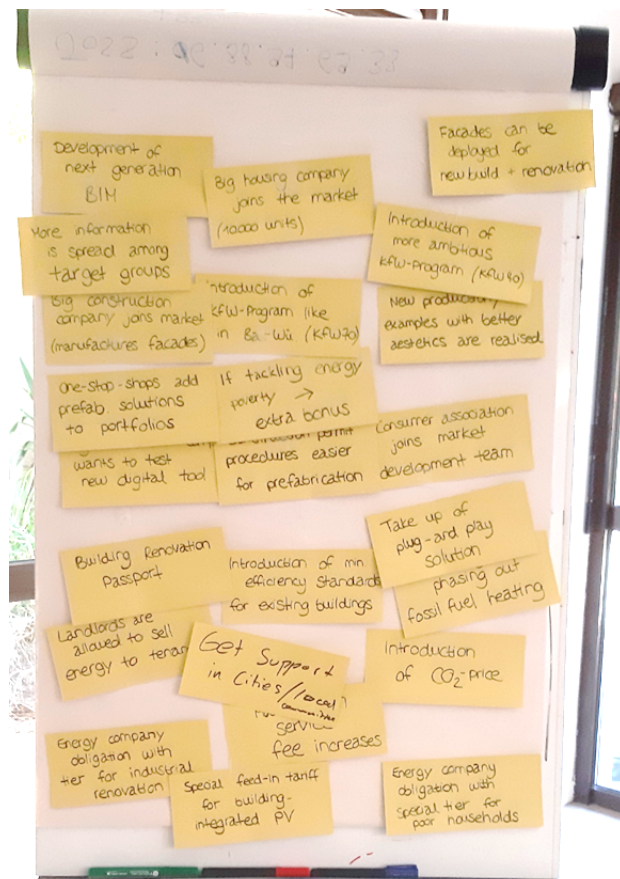 Development of
next generation
BIM
Big housing company
joins the market
(10000 units)
Facades can be
deployed for
new build + renovation
More information
is spread among
target groups
Introduction of
more ambitious
KfW-Program (KfW40)
Big construction
company joins market
(manufactures facades)
Introduction of
KfW-Program like
in Ba-Wü (KfW70)
New
examples with better
aestetics are realised.
one-stop-shops add
prefab. solutions
to portfolios
If tackling energy
poverty →
extra bonus
wants to test
new digital tool
permit
procedures easier
for prefabrication
Consumer association
joins market
development team
Building Renovation
Passport
Introduction of min
efficiency Standards
for existing buildings
Take up of
plug-and play
solution
phasing out
fossil fuel heating
Landlords are
allowed to sell
energy to
Get Support
in Cities/local
communities
Introduction
of CO2-price
service
fee increases
Energy company
obligation with
tier for industrial
renovation
Special feed-in tariff
for building-
integrated PV
Energy company
obligation with
special tier for
poor households